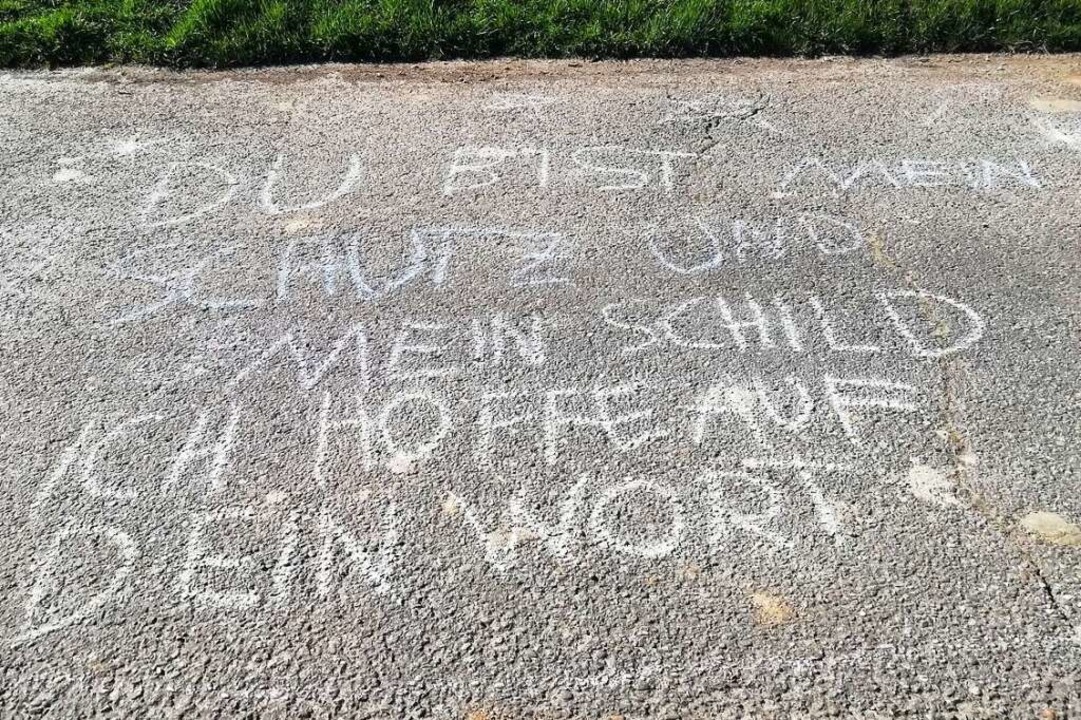 DU BIST MEIN
SCHUTZ UND
MEIN SCHILD
ICH HOFFE AUF
DEIN WORT